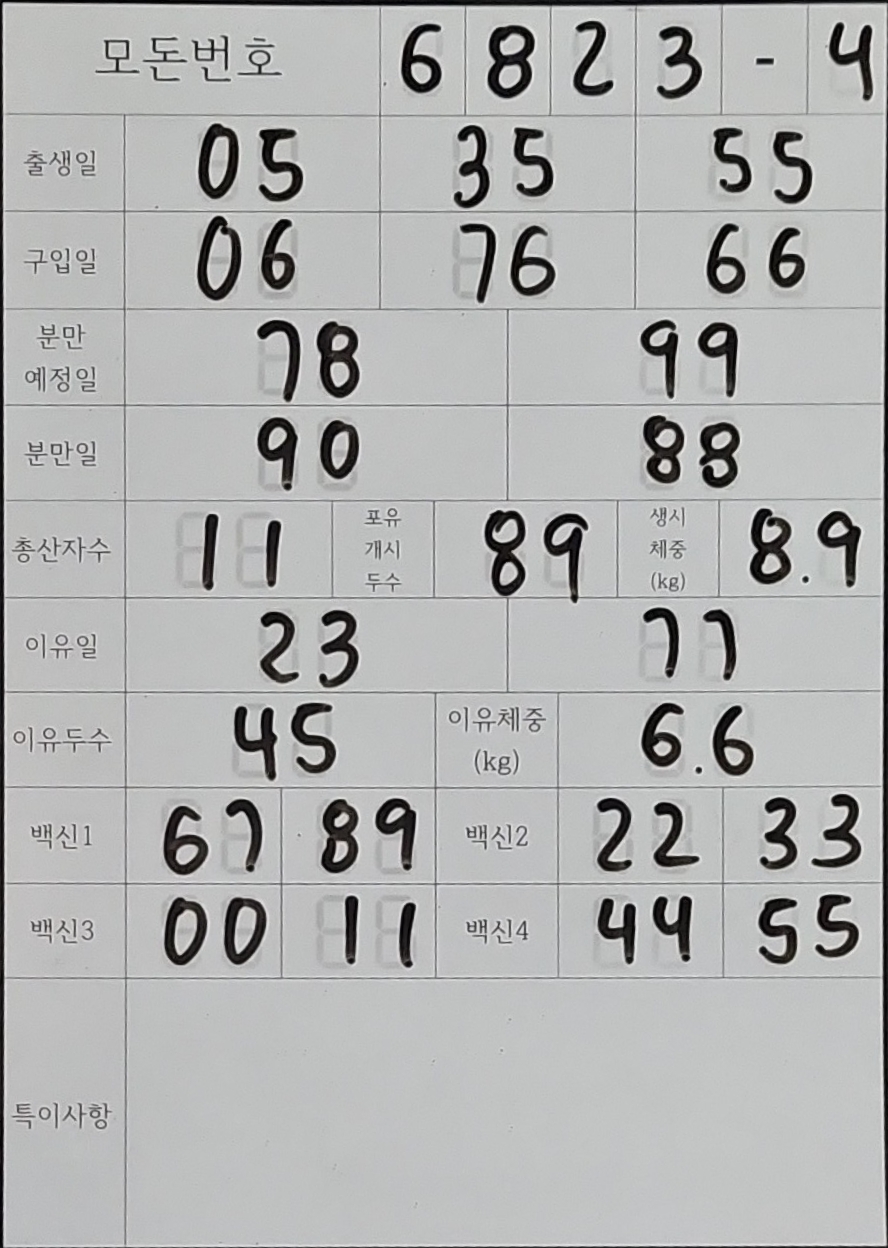 모돈번호 6 8 2 3 - 4
출생일 05 35 55
구입일 06 76 66
분만 예정일 78 99
분만일 90 88
총산자수 11 포유 개시 두수 89 생시 체중 (kg) 8.9
이유일 23 77
이유두수 45 이유체중 (kg) 6.6
백신1 67 89 백신2 22 33
백신3 00 11 백신4 44 55
특이사항